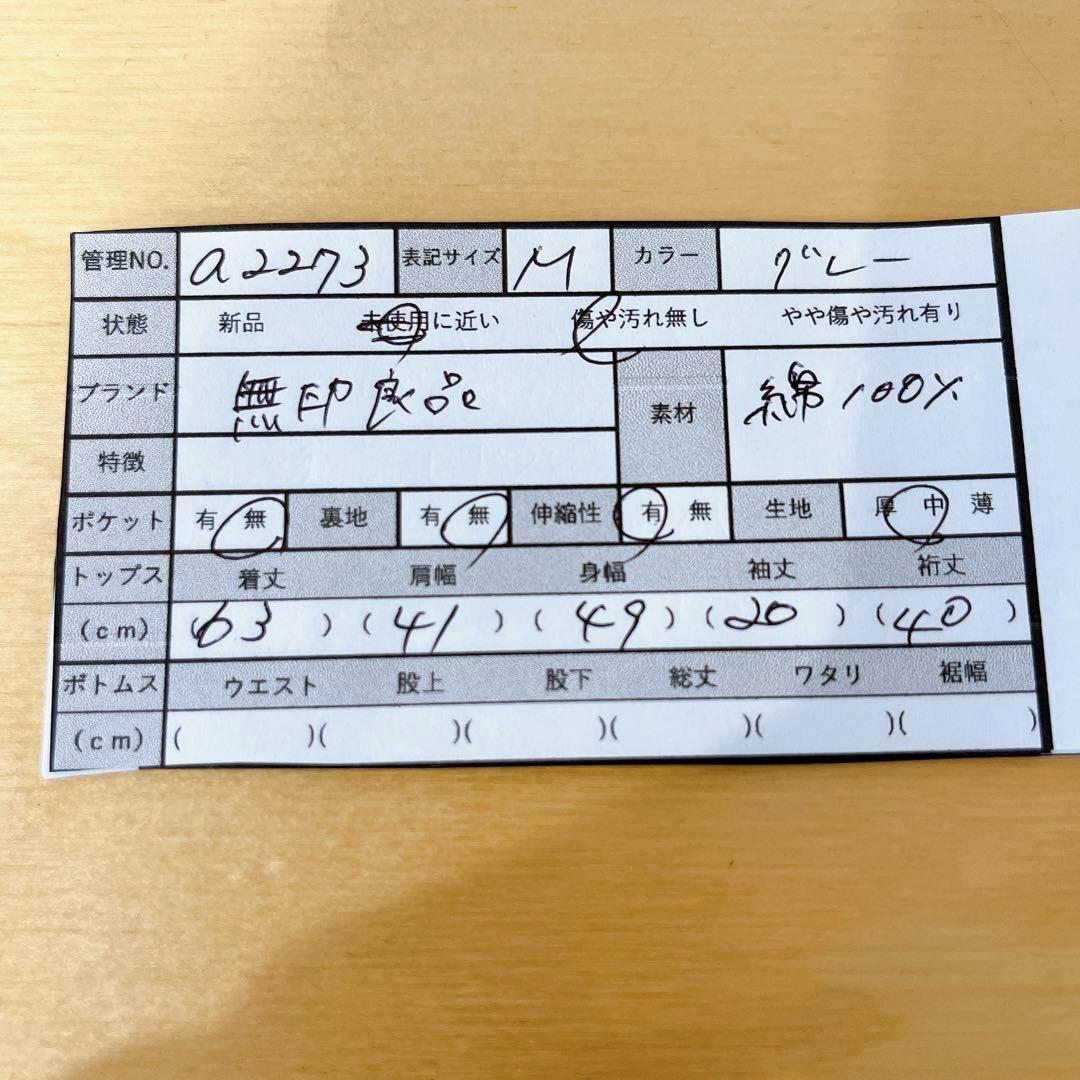 管理NO. a2273 表記サイズ M カラー グレー
状態 新品 未使用に近い 傷や汚れ無し やや傷や汚れ有り
ブランド 無印良品 素材 綿100%
特徴
ポケット 有 無 裏地 有 無 伸縮性 有 無 生地 厚 中 薄
トップス 着丈 肩幅 身幅 袖丈 裄丈
(cm) (63 ) (41 ) (49 ) (20 ) (40 )
ボトムス ウエスト 股上 股下 総丈 ワタリ 裾幅
(cm) ( )( )( )( )( )( )